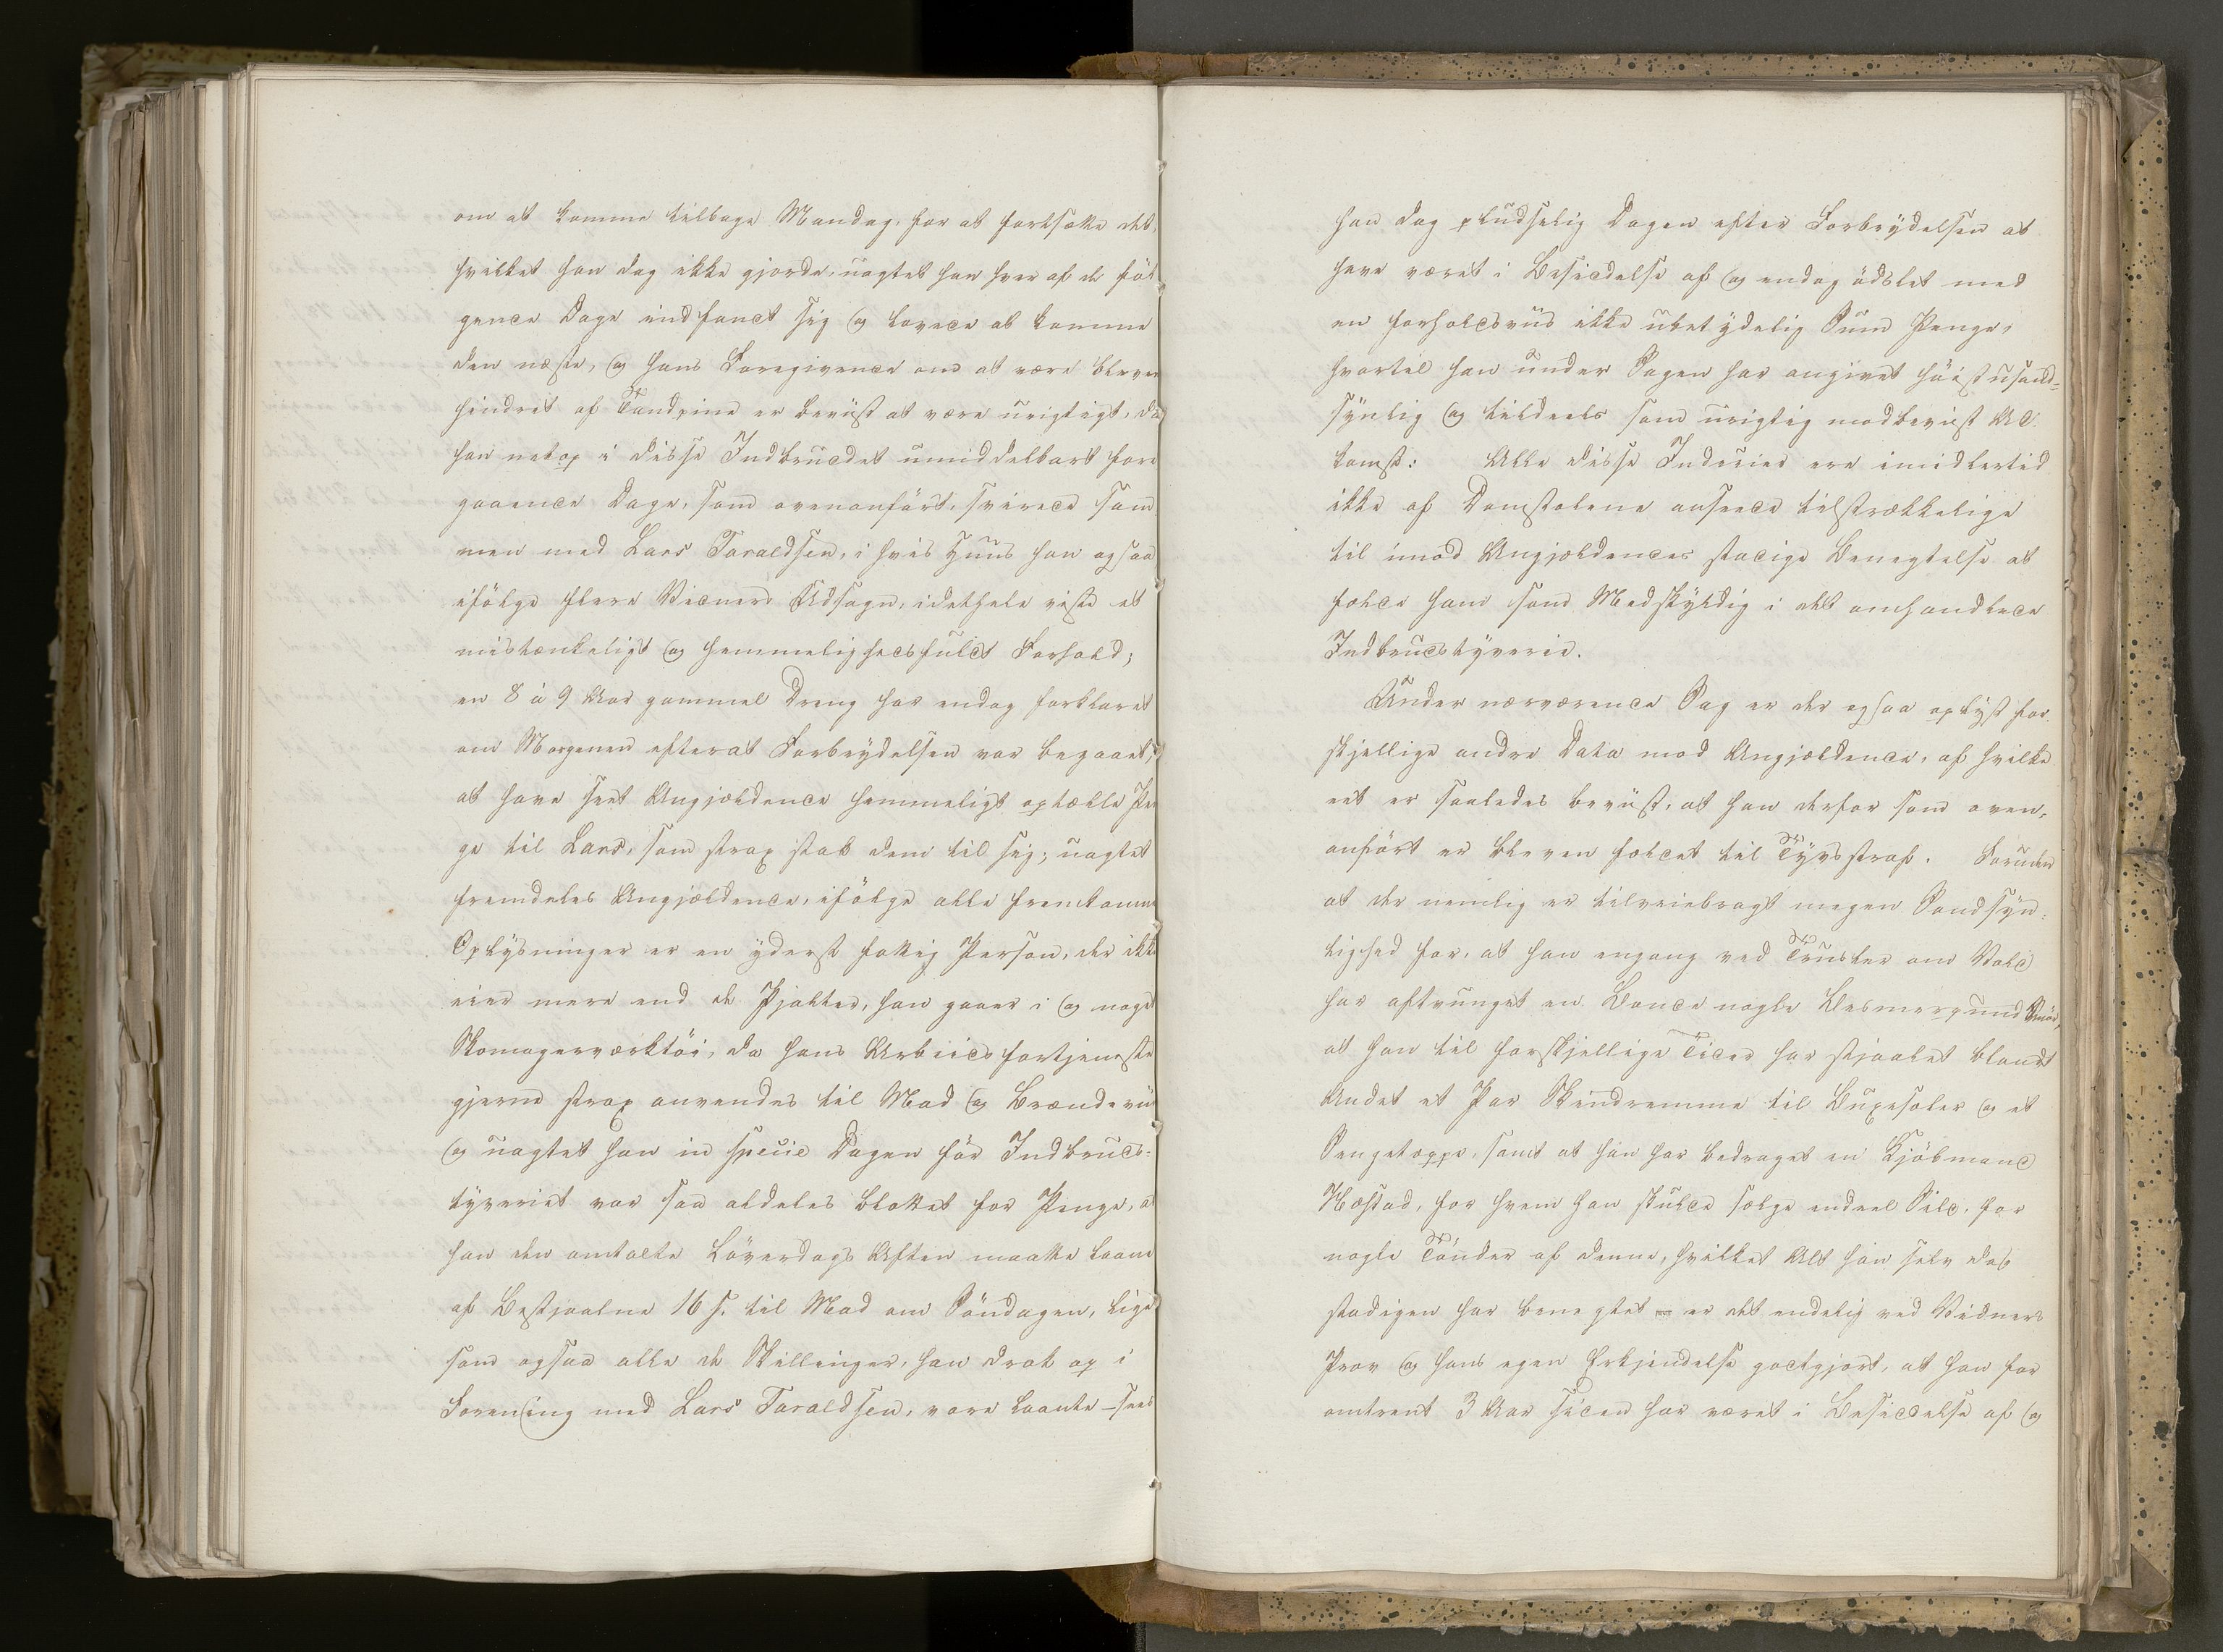 om at komme tilbage Mandag, for at fortsætte det,
hvilket han dog ikke gjorde, uagtet han hver af de föl
gende Dage indfandt sig og lovede at komme
den næste, og hans Foregivende om at være bleven
hindret af Tandpine er beviist at være urigtigt, da
han netop i disse Indbruddet umiddelbart fore
gaaende Dage, som ovenanfört, svirede sam
men med Lars Taraldsen, i hvis Huus han ogsaa
ifölge flere Vidners Udsagn, idethele viste et
mistænkeligt og hemmelighedsfuldt Forhold;
en 8 à 9 Aar gammel Dreng har endog forklaret
om Morgenen efterat Forbrydelsen var begaaet,
at have seet Angjældende hemmeligt optælle Pen
ge til Lars, som strax stak dem til sig; uagtet
fremdeles Angjældende, ifölge alle fremkomne
Oplysninger er en yderst fattig Person, der ikke
eier mere end de Pjalter, han gaaer i og noget
Skomagerværktöi, da hans Arbeidsfortjeneste
gjerne strax anvendes til Mad og Brændeviin
og uagtet han in specie Dagen för Indbruds-
tyveriet var saa aldeles blottet for Penge, at
han den omtalte Löverdags Aften maatte laane
af Bestjaalne 16 s. til Mad om Söndagen, lige
som ogsaa alle de Skillinger, han drak op i
Forening med Lars Taraldsen, vare laante – sees
han dog pludselig Dagen efter Forbrydelsen at
have været i Besiddelse af og endog ödslet med
en forholdsviis ikke ubetydelig Sum Penge,
hvortil han under Sagen har angivet höist usand-
synlig og tildeels som urigtig modbeviist Ad
komst: Alle disse Indicier ere imidlertid
ikke af Domstolene anseede tilstrækkelige
til imod Angjældendes stadige Benegtelse at
fælde ham som Medskyldig i det omhandlede
Indbrudstyverie.
Under nærværende Sag er der ogsaa oplyst for
skjellige andre Data mod Angjældende, af hvilke
eet er saaledes beviist, at han derfor som oven,
anfört er bleven fældet til Tyvsstraf. Foruden
at der nemlig er tilveiebragt megen Sandsyn-
lighed for, at han engang ved Trusler om Vold
har aftvunget en Bonde nogle Bismerpund Smör,
at han til forskjellige Tider har stjaalet blandt
Andet et Par Skindremme til Buxeseler og et
Sengetæppe, samt at han har bedraget en Kjöbmand
Hæstad, for hvem han skulde sælge endeel Sild, for
nogle Tönder af denne, hvilket Alt han selv dog
stadigen har benegtet – er det endelig ved Vidners
Prov og hans egen Erkjendelse godtgjort, at han for
omtrent 3 Aar siden har været i Besiddelse af og